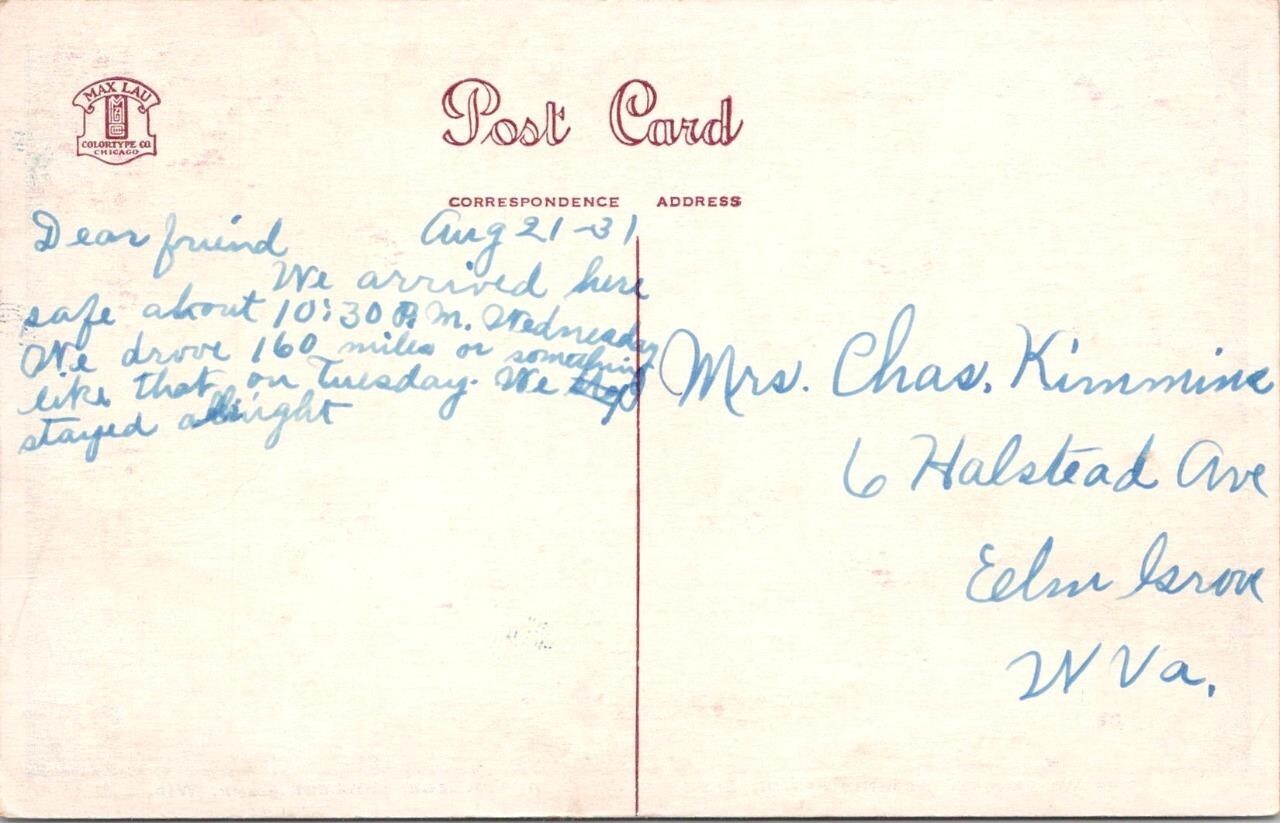 MAX LAU
COLORTYPE CO.
CHICAGO
Post Card
CORRESPONDENCE ADDRESS
Dear friend Aug 21-31
We arrived here
safe about 10:30 P.M. Wednesday
We drove 160 miles or something
like that on Tuesday. We
stayed allnight
Mrs. Chas. Kimmins
6 Halstead Ave
Eelm Grove
W Va.